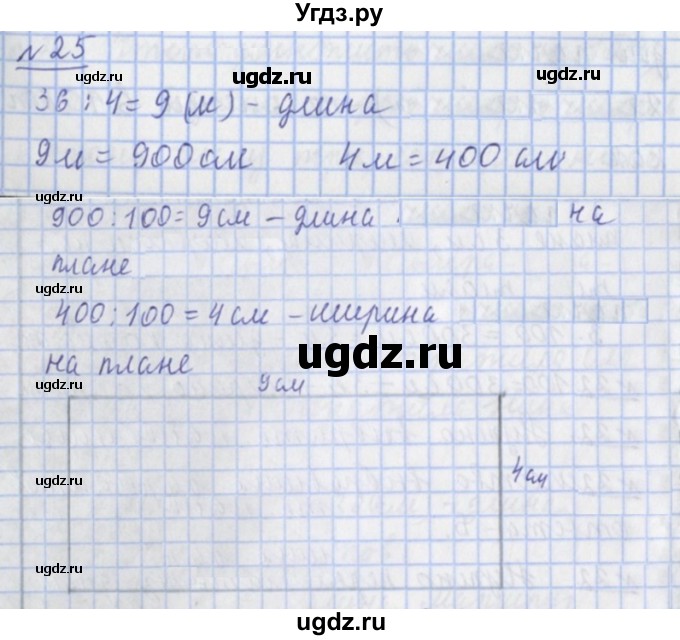 Угдз.ру
№25
ugdz.ru ugdz.ru ugdz.ru
36 : 4 = 9 (м) - длина
9м = 900 см 4м = 400 см
ugdz.ru ugdz.ru
900 : 100 = 9 см - длина на
плане
ugdz.ru ugdz.ru
400 : 100 = 4 см - ширина
ugdz.ru
на плане
ugdz.ru
9 см
4 см
ugdz.ru ugdz.ru
ugdz.ru
ugdz.ru